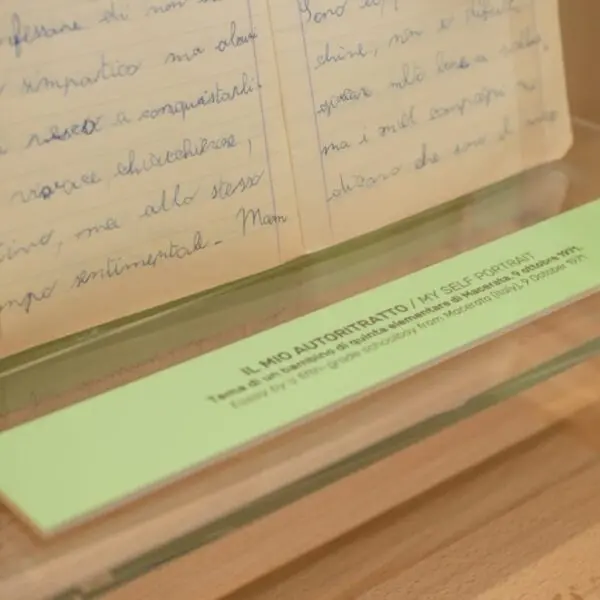 nfessare di non
simpatico ma alcu
riesco a conquistarli.
vivace, chiacchierone,
tivo, ma allo stesso
mpo sentimentale. Mam
Sono
chine, non è
molto bene a
ma i miei compagni mi
dicono che sono il
IL MIO AUTORITRATTO / MY SELF PORTRAIT
Tema di un bambino di quinta elementare di Macerata, 9 ottobre 1971.
Essay by a fifth-grade schoolboy from Macerata (Italy), 9 October 1971